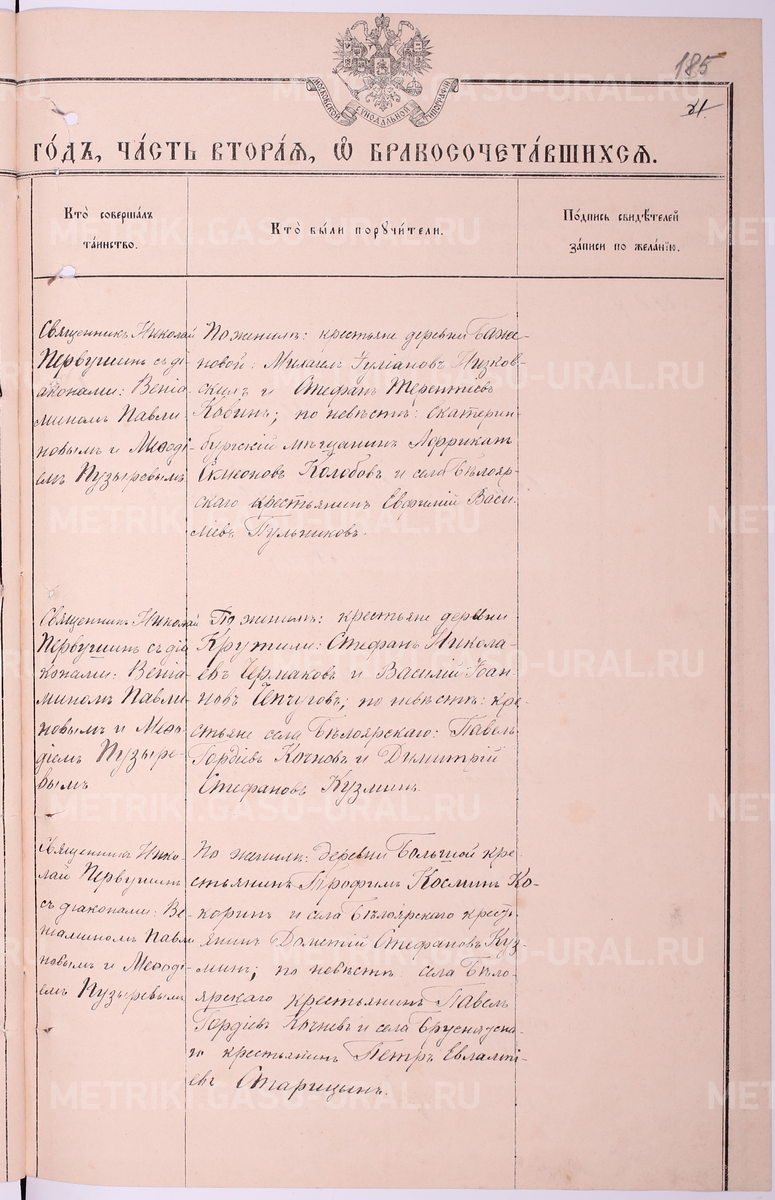 185
МОСКОВСКОЙ СѴНОДАЛЬНОЙ ТИПОГРАФІИ
ГО́ДЪ, ЧА́СТЬ ВТОРА́Я, Ѽ БРАКОСОЧЕТА́ВШИХСЯ.
Кто̀ совершалъ
та́инство.
Кто̀ бы́ли порꙋчи́тели.
По́дпись свидѣ́телей
за́писи по жела́нїю.
Священникъ Николай
Первушинъ съ ді-
аконами: Веніа-
миномъ Павли-
новымъ и Меѳоді-
емъ Пузыревымъ
По женихѣ: крестьяне деревни Баже-
новой: Михаилъ Іуліановъ Низков-
скихъ и Стефанъ Терентіевъ
Кобинъ; по невѣстѣ: екатерин-
бургскій мѣщанинъ Африканъ
Симеоновъ Колобовъ и села Бѣлояр-
скаго крестьянинъ Евфимій Васи-
ліевъ Пульниковъ.
Священникъ Николай
Первушинъ съ діа
конами: Веніа-
миномъ Павли-
новымъ и Меѳо-
діемъ Пузыре-
вымъ
По женихѣ: крестьяне деревни
Крутихи: Стефанъ Никола-
евъ Чермаковъ и Василій Іоан-
новъ Чепчуговъ; по невѣстѣ: кре-
стьяне села Бѣлоярскаго: Павелъ
Гордіевъ Кочневъ и Димитрій
Стефановъ Кузминъ.
Священникъ Нико-
лай Первушинъ
съ діаконами: Ве-
ніаминомъ Павли
новымъ и Меѳоді-
емъ Пузыревымъ
По женихѣ: деревни Большой кре-
стьянинъ Трофимъ Косминъ Ко-
коринъ и села Бѣлоярскаго кресть
янинъ Дометій Стефановъ Куз-
минъ; по невѣстѣ: села Бѣло-
ярскаго крестьянинъ Павелъ
Гордіевъ Кочневъ и села Бруснятска-
го крестьянинъ Петръ Евлампі-
евъ Старицынъ.
METRIKI.GASO-URAL.RU